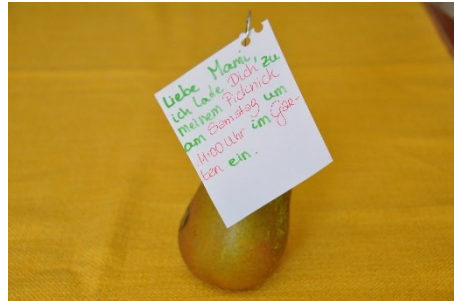 Liebe Mami,
ich lade Dich zu
meinem Picknick
am Samstag um
11:00 Uhr im Gar-
ten ein.